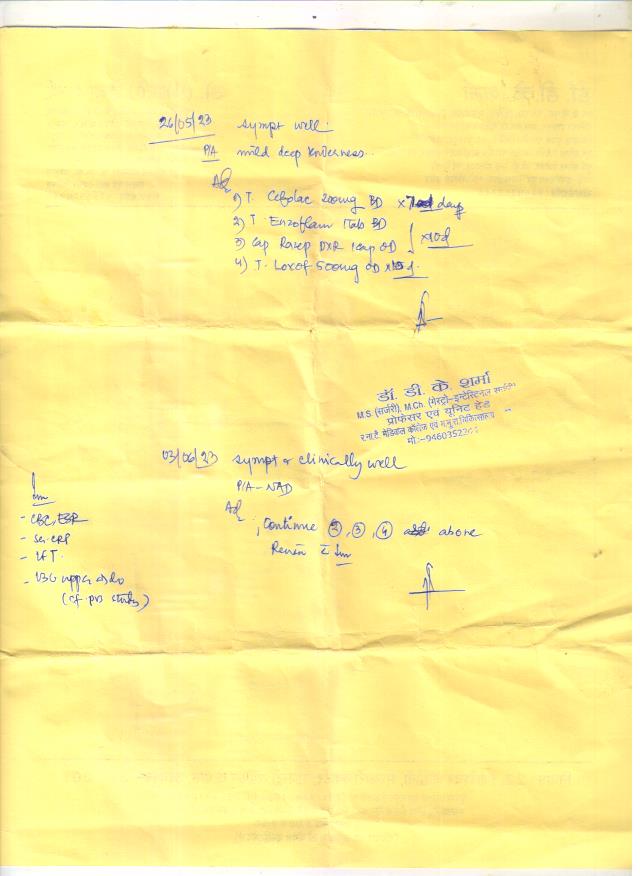 26/05/23 sympt well.
P/A mild deep tenderness..
Adv
1) T. Cefolac 200mg BD x 7 days
2) T. Enzoflam 1tab BD
3) Cap Rasep DXR 1cap OD } x10d
4) T. Loxof 500mg OD x 15 d.
डॉ. डी. के. शर्मा
M.S (सर्जरी), M.Ch. (गेस्ट्रो-इन्टेस्टिनल सर्जरी)
प्रोफेसर एवं यूनिट हेड
र.ना.टै. मेडिकल कॉलेज एवं म.भू.रा.चिकित्सालय
मो:-9460352
03/06/23 sympt & clinically well
P/A - NAD
Adv
Continue 2, 3, 4 above
Review c Inv
Inv
- CBC, ESR
- Ser. CRP
- LFT.
- USG upper abdo
(cf. prv study)